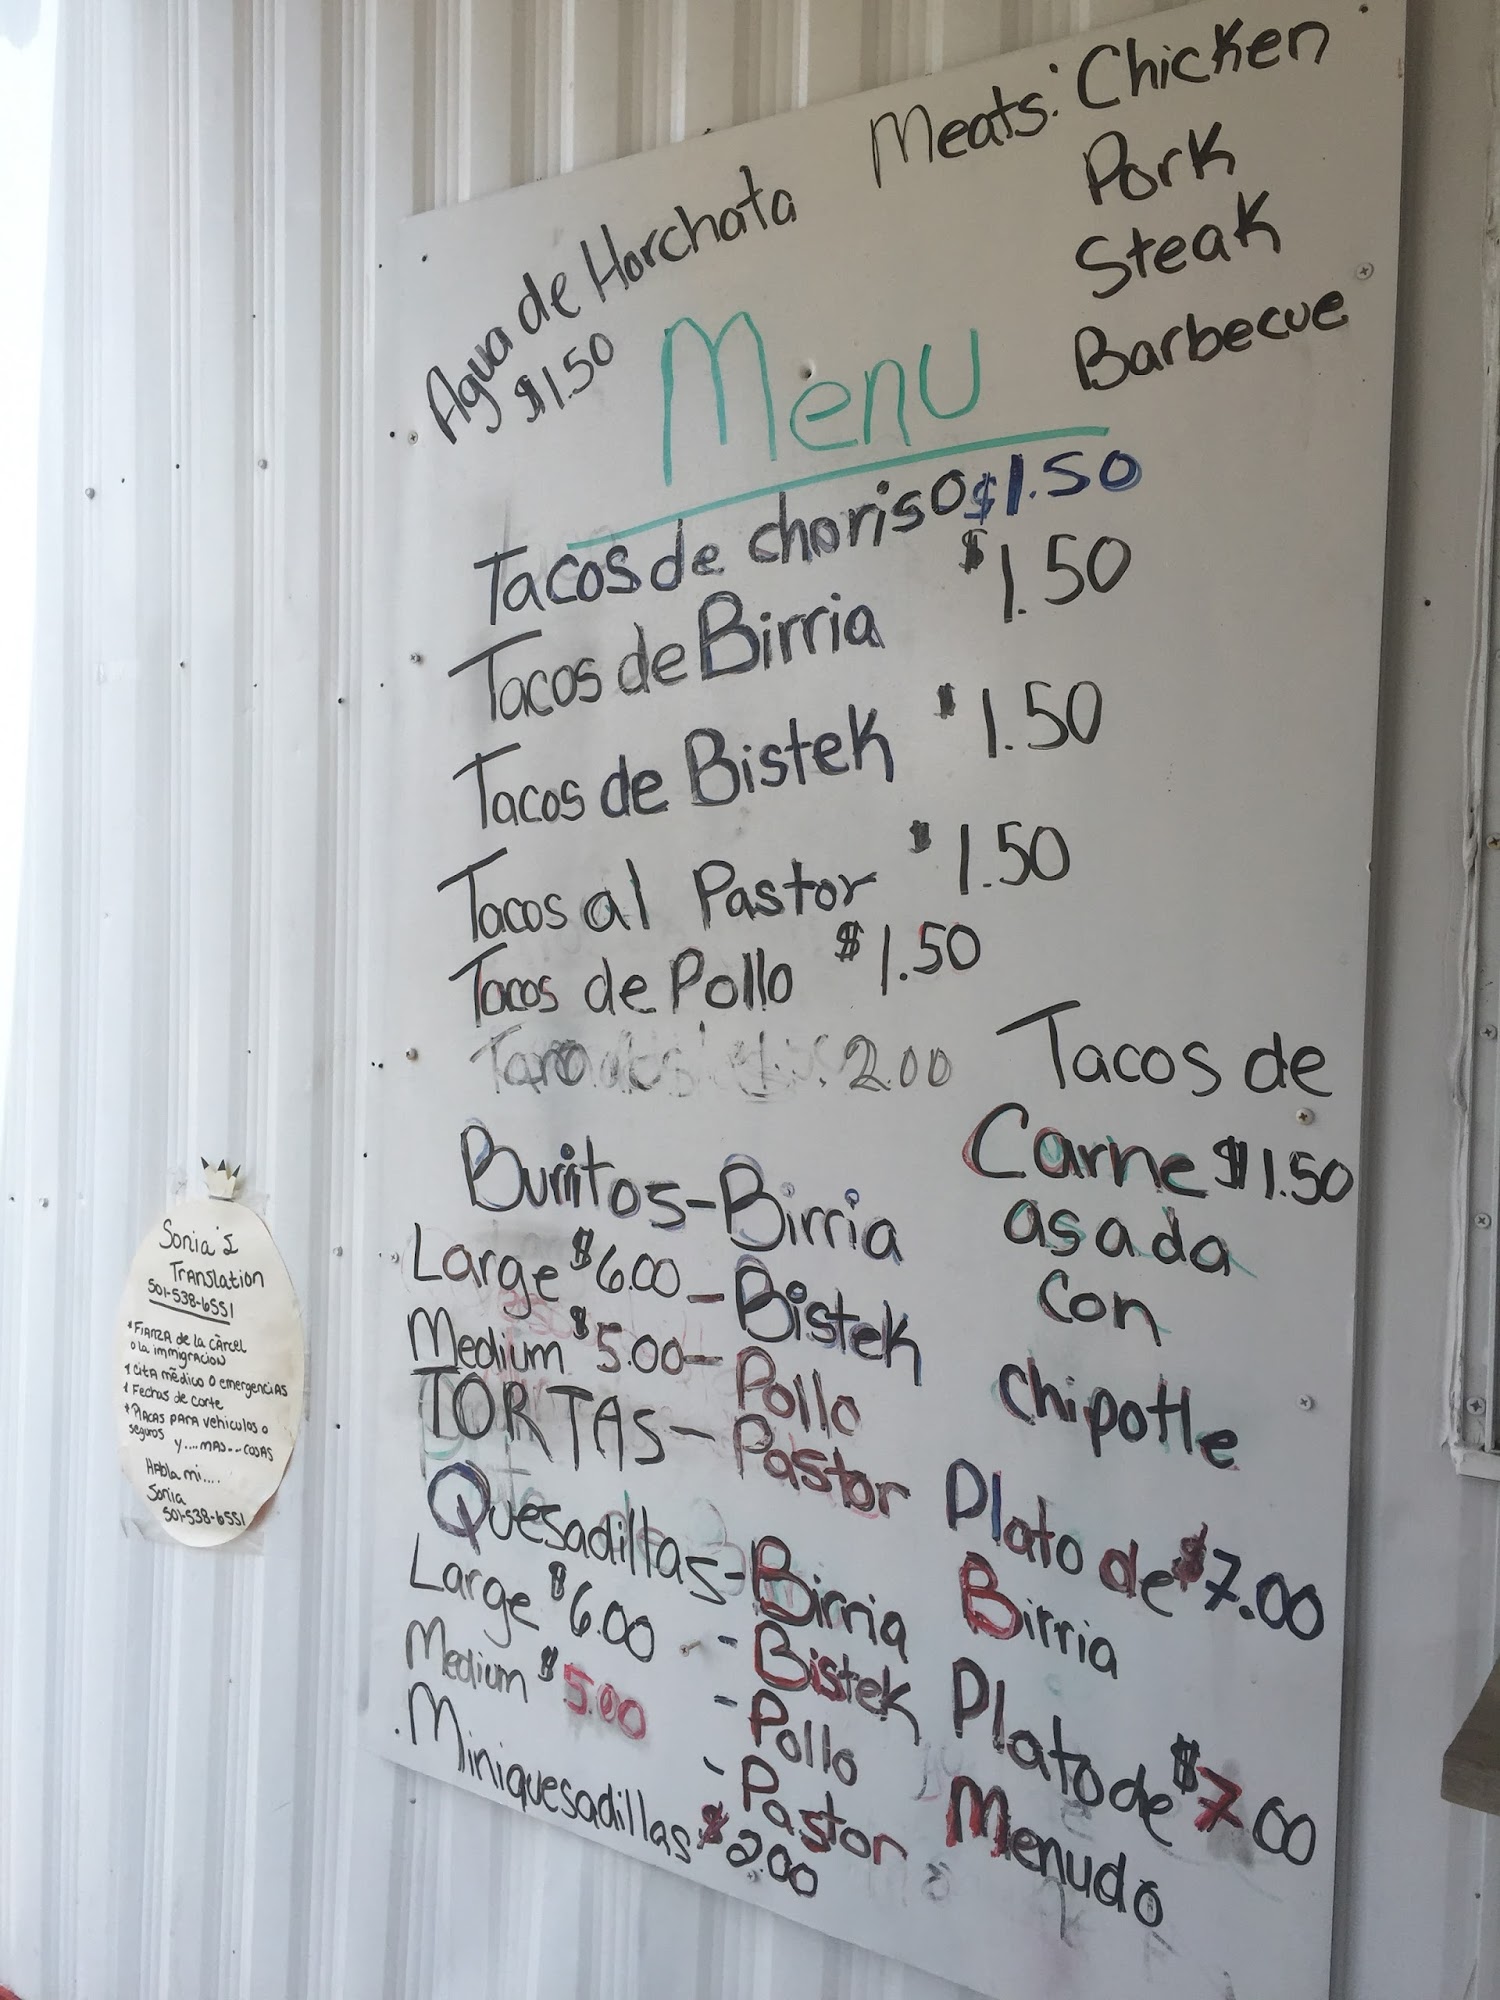 Agua de Horchata
$1.50
Meats: Chicken
Pork
Steak
Barbecue
Menu
Tacos de choriso $1.50
Tacos de Birria $1.50
Tacos de Bistek $1.50
Tacos al Pastor $1.50
Tacos de Pollo $1.50
2.00
Burritos - Birria
Large $6.00 - Bistek
Medium $5.00 - Pollo
TORTAS - Pastor
Quesadillas - Birria
Large $6.00 - Bistek
Medium $5.00 - Pollo
- Pastor
Miniquesadillas $2.00
Tacos de
Carne $1.50
asada
con
chipotle
Plato de $7.00
Birria
Plato de $7.00
Menudo
Sonia's
Translation
501-538-6551
*Fianza de la càrcel
o la immigracion
*cita mèdico o emergencias
*Fechas de corte
*Placas para vehiculos o
seguros y....mas--cosas
Habla mi....
Sonia
501-538-6551